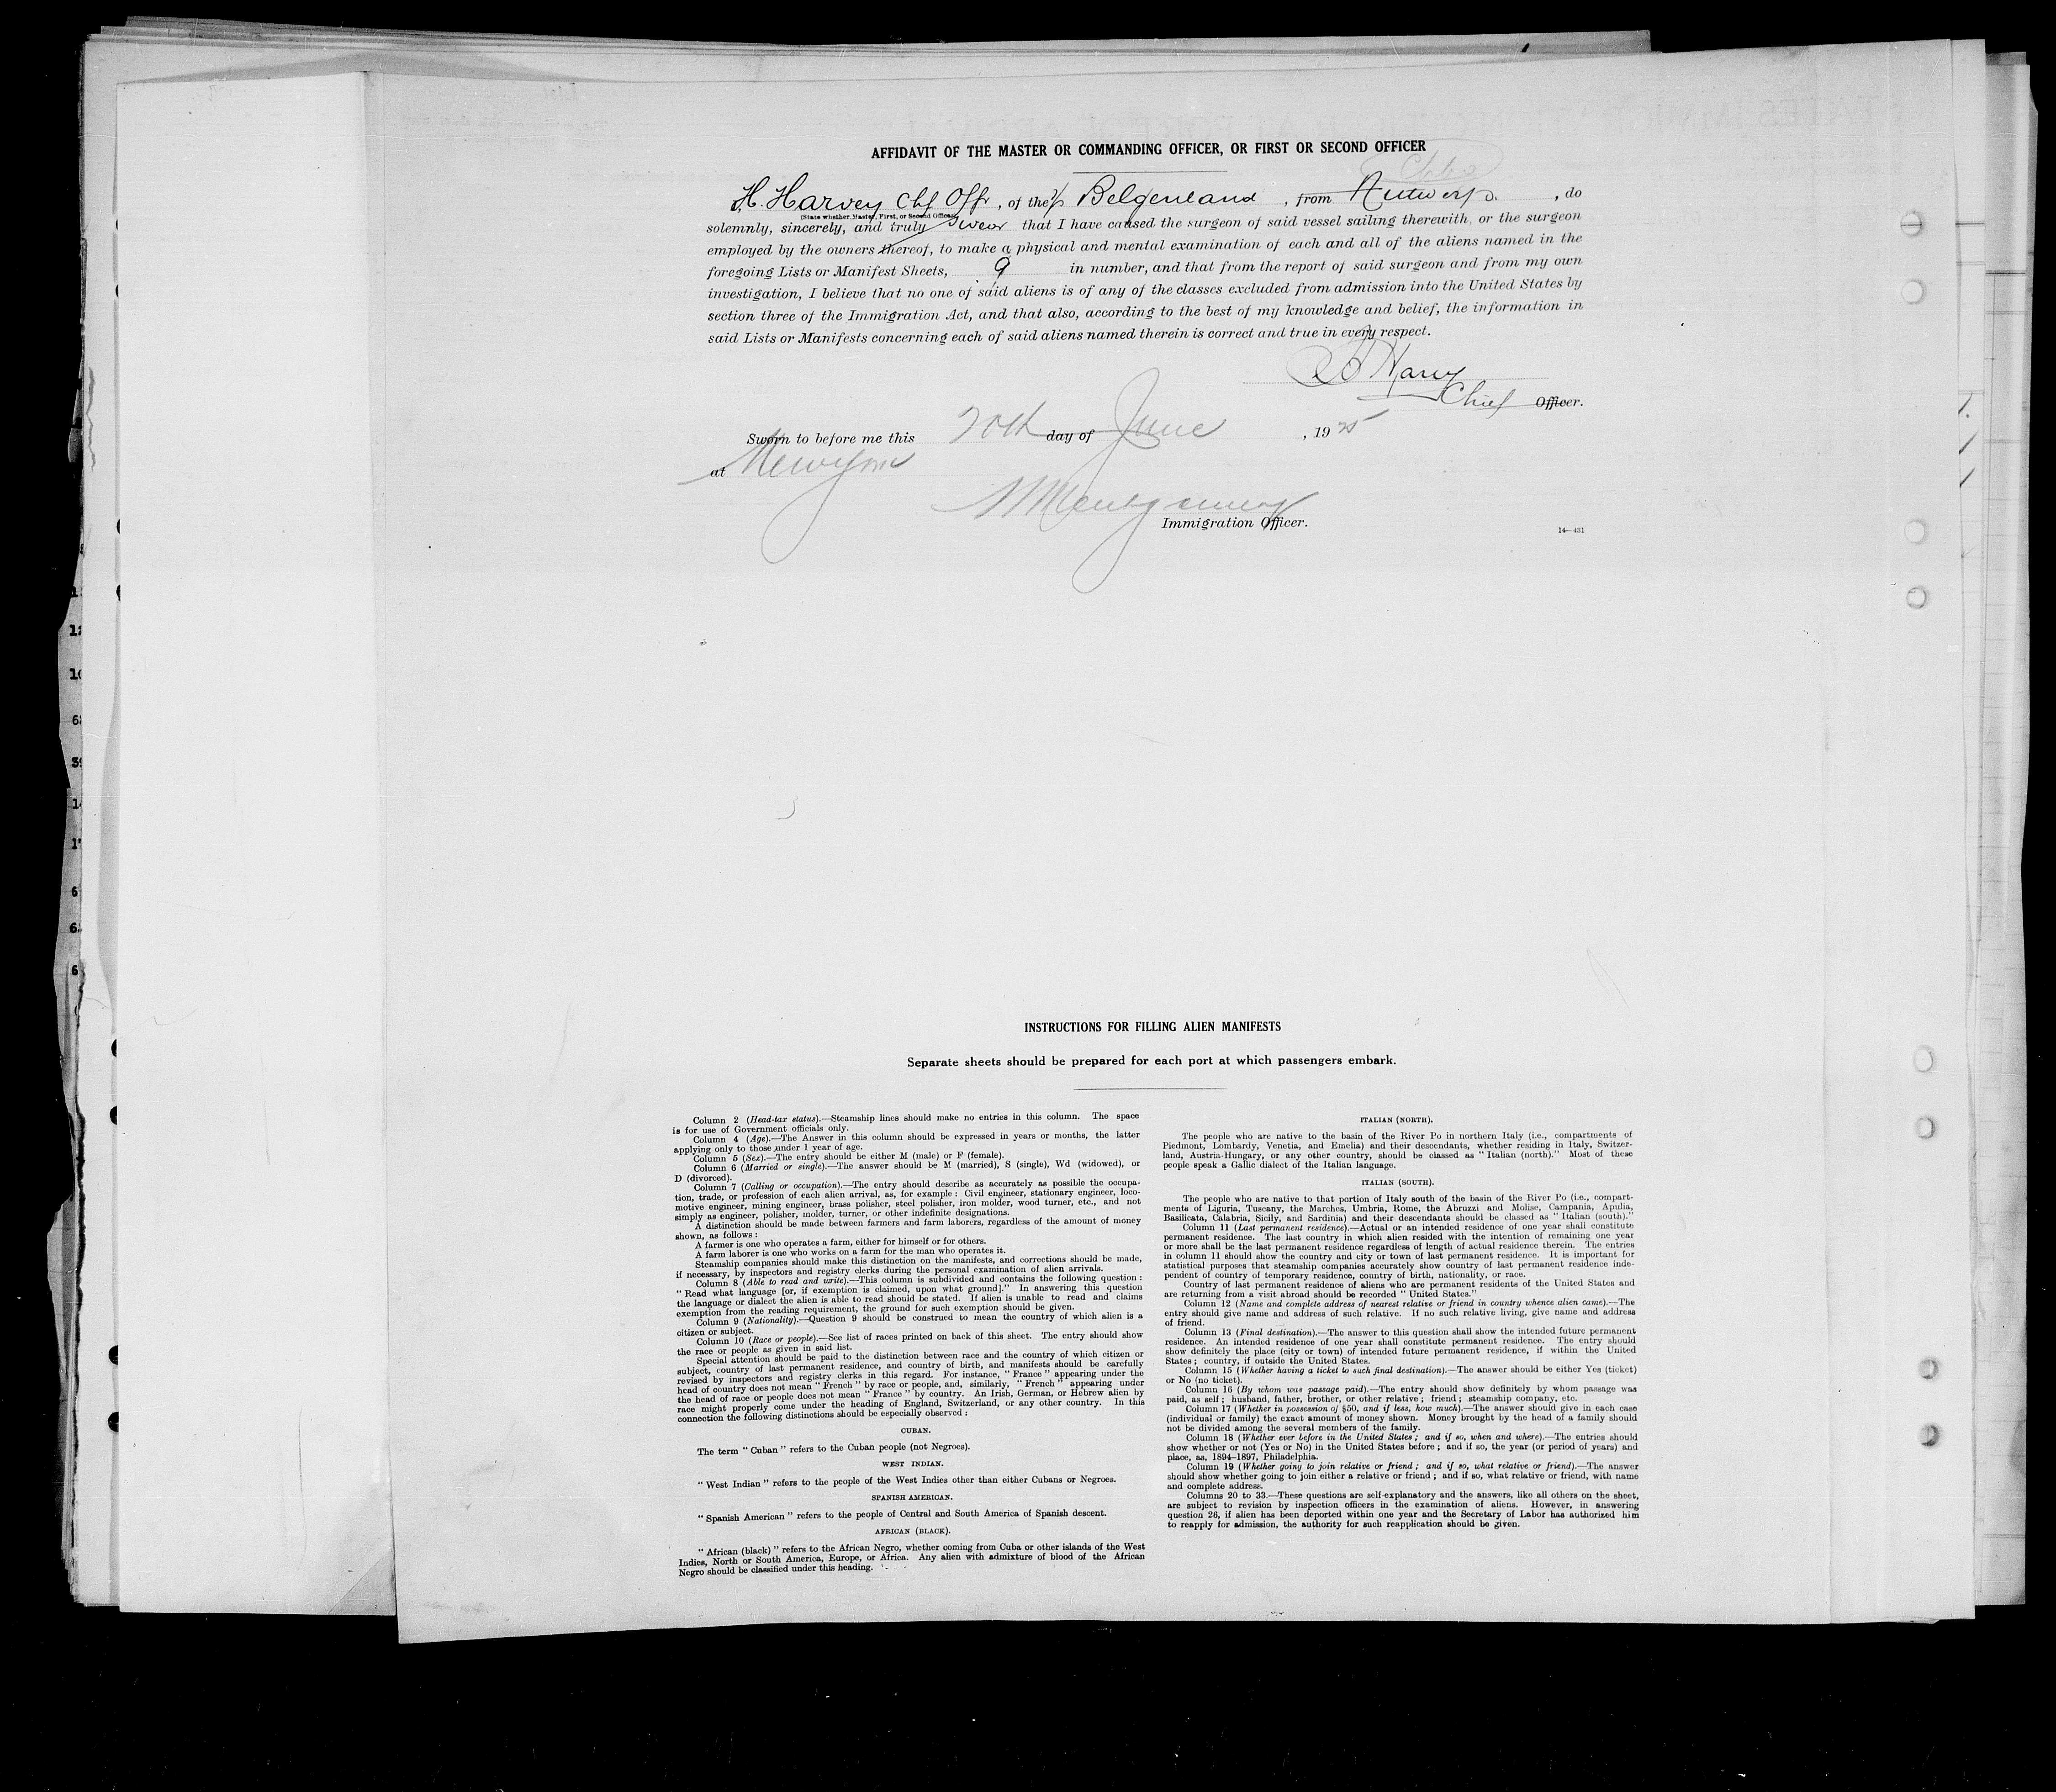 AFFIDAVIT OF THE MASTER OR COMMANDING OFFICER, OR FIRST OR SECOND OFFICER
H. Harvey Chf Offr, of the Belgenland, from Antwerp, do
(State whether Master, First, or Second Officer)
solemnly, sincerely, and truly swear that I have caused the surgeon of said vessel sailing therewith, or the surgeon
employed by the owners thereof, to make a physical and mental examination of each and all of the aliens named in the
foregoing Lists or Manifest Sheets, 9 in number, and that from the report of said surgeon and from my own
investigation, I believe that no one of said aliens is of any of the classes excluded from admission into the United States by
section three of the Immigration Act, and that also, according to the best of my knowledge and belief, the information in
said Lists or Manifests concerning each of said aliens named therein is correct and true in every respect.
Harvey
Chief Officer.
Sworn to before me this 20th day of June, 1925
at New York
Montgomery
Immigration Officer.
14—431
INSTRUCTIONS FOR FILLING ALIEN MANIFESTS
Separate sheets should be prepared for each port at which passengers embark.
Column 2 (Head-tax status).—Steamship lines should make no entries in this column. The space
is for use of Government officials only.
Column 4 (Age).—The Answer in this column should be expressed in years or months, the latter
applying only to those under 1 year of age.
Column 5 (Sex).—The entry should be either M (male) or F (female).
Column 6 (Married or single).—The answer should be M (married), S (single), Wd (widowed), or
D (divorced).
Column 7 (Calling or occupation).—The entry should describe as accurately as possible the occupa-
tion, trade, or profession of each alien arrival, as, for example: Civil engineer, stationary engineer, loco-
motive engineer, mining engineer, brass polisher, steel polisher, iron molder, wood turner, etc., and not
simply as engineer, polisher, molder, turner, or other indefinite designations.
A distinction should be made between farmers and farm laborers, regardless of the amount of money
shown, as follows:
A farmer is one who operates a farm, either for himself or for others.
A farm laborer is one who works on a farm for the man who operates it.
Steamship companies should make this distinction on the manifests, and corrections should be made,
if necessary, by inspectors and registry clerks during the personal examination of alien arrivals.
Column 8 (Able to read and write).—This column is subdivided and contains the following question:
"Read what language [or, if exemption is claimed, upon what ground]." In answering this question
the language or dialect the alien is able to read should be stated. If alien is unable to read and claims
exemption from the reading requirement, the ground for such exemption should be given.
Column 9 (Nationality).—Question 9 should be construed to mean the country of which alien is a
citizen or subject.
Column 10 (Race or people).—See list of races printed on back of this sheet. The entry should show
the race or people as given in said list.
Special attention should be paid to the distinction between race and the country of which citizen or
subject, country of last permanent residence, and country of birth, and manifests should be carefully
revised by inspectors and registry clerks in this regard. For instance, "France" appearing under the
head of country does not mean "French" by race or people, and, similarly, "French" appearing under
the head of race or people does not mean "France" by country. An Irish, German, or Hebrew alien by
race might properly come under the heading of England, Switzerland, or any other country. In this
connection the following distinctions should be especially observed:
CUBAN.
The term "Cuban" refers to the Cuban people (not Negroes).
WEST INDIAN.
"West Indian" refers to the people of the West Indies other than either Cubans or Negroes.
SPANISH AMERICAN.
"Spanish American" refers to the people of Central and South America of Spanish descent.
AFRICAN (BLACK).
"African (black)" refers to the African Negro, whether coming from Cuba or other islands of the West
Indies, North or South America, Europe, or Africa. Any alien with admixture of blood of the African
Negro should be classified under this heading.
ITALIAN (NORTH).
The people who are native to the basin of the River Po in northern Italy (i.e., compartments of
Piedmont, Lombardy, Venetia, and Emelia) and their descendants, whether residing in Italy, Switzer-
land, Austria-Hungary, or any other country, should be classed as "Italian (north)." Most of these
people speak a Gallic dialect of the Italian language.
ITALIAN (SOUTH).
The people who are native to that portion of Italy south of the basin of the River Po (i.e., compart-
ments of Liguria, Tuscany, the Marches, Umbria, Rome, the Abruzzi and Molise, Campania, Apulia,
Basilicata, Calabria, Sicily, and Sardinia) and their descendants should be classed as "Italian (south)."
Column 11 (Last permanent residence).—Actual or an intended residence of one year shall constitute
permanent residence. The last country in which alien resided with the intention of remaining one year
or more shall be the last permanent residence regardless of length of actual residence therein. The entries
in column 11 should show the country and city or town of last permanent residence. It is important for
statistical purposes that steamship companies accurately show country of last permanent residence inde-
pendent of country of temporary residence, country of birth, nationality, or race.
Country of last permanent residence of aliens who are permanent residents of the United States and
are returning from a visit abroad should be recorded "United States."
Column 12 (Name and complete address of nearest relative or friend in country whence alien came).—The
entry should give name and address of such relative. If no such relative living, give name and address
of friend.
Column 13 (Final destination).—The answer to this question shall show the intended future permanent
residence. An intended residence of one year shall constitute permanent residence. The entry should
show definitely the place (city or town) of intended future permanent residence, if within the United
States; country, if outside the United States.
Column 15 (Whether having a ticket to such final destination).—The answer should be either Yes (ticket)
or No (no ticket).
Column 16 (By whom was passage paid).—The entry should show definitely by whom passage was
paid, as self; husband, father, brother, or other relative; friend; steamship company, etc.
Column 17 (Whether in possession of $50, and if less, how much).—The answer should give in each case
(individual or family) the exact amount of money shown. Money brought by the head of a family should
not be divided among the several members of the family.
Column 18 (Whether ever before in the United States; and if so, when and where).—The entries should
show whether or not (Yes or No) in the United States before; and if so, the year (or period of years) and
place, as, 1894–1897, Philadelphia.
Column 19 (Whether going to join relative or friend; and if so, what relative or friend).—The answer
should show whether going to join either a relative or friend; and if so, what relative or friend, with name
and complete address.
Columns 20 to 33.—These questions are self-explanatory and the answers, like all others on the sheet,
are subject to revision by inspection officers in the examination of aliens. However, in answering
question 26, if alien has been deported within one year and the Secretary of Labor has authorized him
to reapply for admission, the authority for such reapplication should be given.